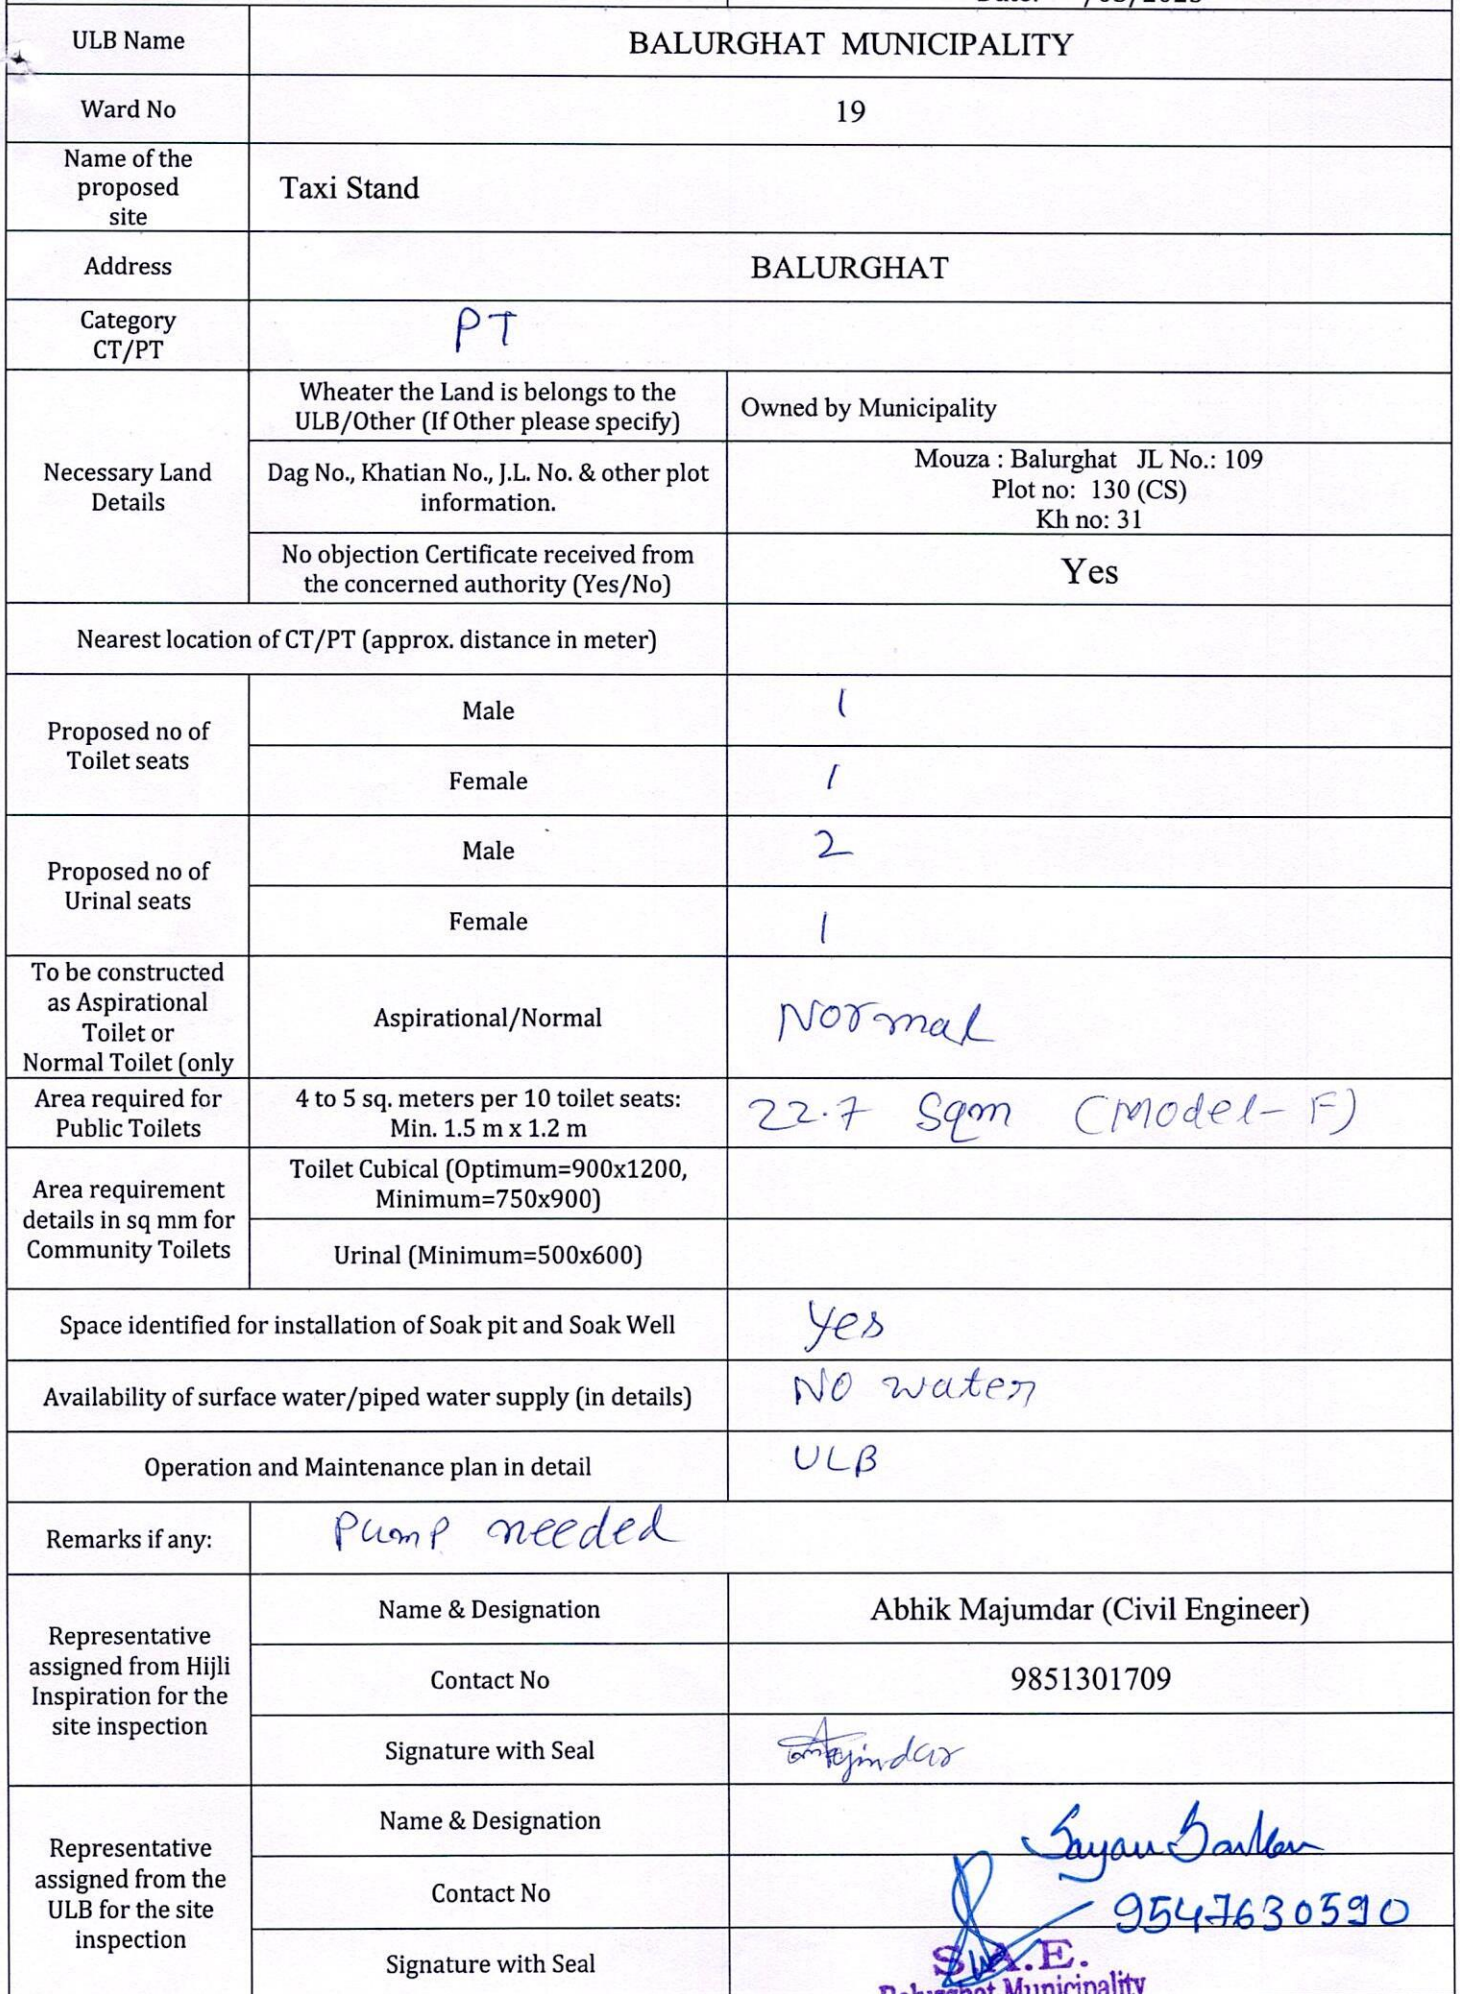 ULB Name
BALURGHAT MUNICIPALITY
Ward No
19
Name of the
proposed
site
Taxi Stand
Address
BALURGHAT
Category
CT/PT
PT
Necessary Land
Details
Wheater the Land is belongs to the
ULB/Other (If Other please specify)
Owned by Municipality
Dag No., Khatian No., J.L. No. & other plot
information.
Mouza : Balurghat JL No.: 109
Plot no: 130 (CS)
Kh no: 31
No objection Certificate received from
the concerned authority (Yes/No)
Yes
Nearest location of CT/PT (approx. distance in meter)
Proposed no of
Toilet seats
Male
1
Female
1
Proposed no of
Urinal seats
Male
2
Female
1
To be constructed
as Aspirational
Toilet or
Normal Toilet (only
Aspirational/Normal
Normal
Area required for
Public Toilets
4 to 5 sq. meters per 10 toilet seats:
Min. 1.5 m x 1.2 m
22.7 Sqm (Model-F)
Area requirement
details in sq mm for
Community Toilets
Toilet Cubical (Optimum=900x1200,
Minimum=750x900)
Urinal (Minimum=500x600)
Space identified for installation of Soak pit and Soak Well
Yes
Availability of surface water/piped water supply (in details)
NO water
Operation and Maintenance plan in detail
ULB
Remarks if any:
Pump needed
Representative
assigned from Hijli
Inspiration for the
site inspection
Name & Designation
Abhik Majumdar (Civil Engineer)
Contact No
9851301709
Signature with Seal
Representative
assigned from the
ULB for the site
inspection
Name & Designation
Sayan Sarkar
Contact No
9547630590
Signature with Seal
S.A.E.
Balurghat Municipality